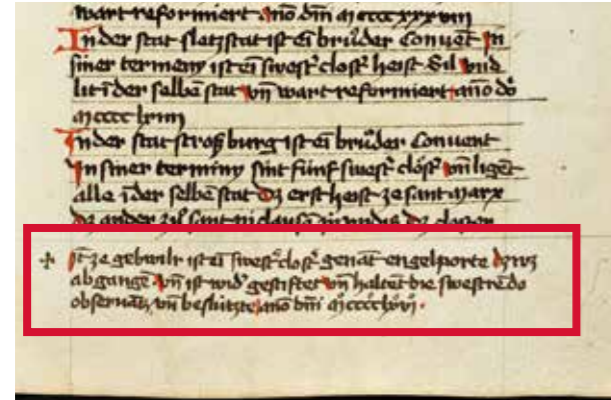 wart reformiert Año dñi mccccxxxviii
In der stat sletzstat ist ei brůder Convēt In
siner termeny ist ei swest͛ clost͛ heist Sil vnd
lit ī der selbē stat vn̄ wart reformiert año do
mcccc lxiiii
In der stat stroßburg ist ei brůder Convent
In siner terminy sint fūnf swest͛ clöst͛ vn̄ ligēt
alle ī der selbē stat Dz erst heist ze sant marx
dz ander zů sant
It̄ ze gebwilr ist ei swest͛ clost͛ genāt engelporte dz wz
abgangē vn̄ ist wid͛ gestiftet vn̄ haltēt die swestrē do
observātz vn̄ beslützte año dñi mcccclxvi